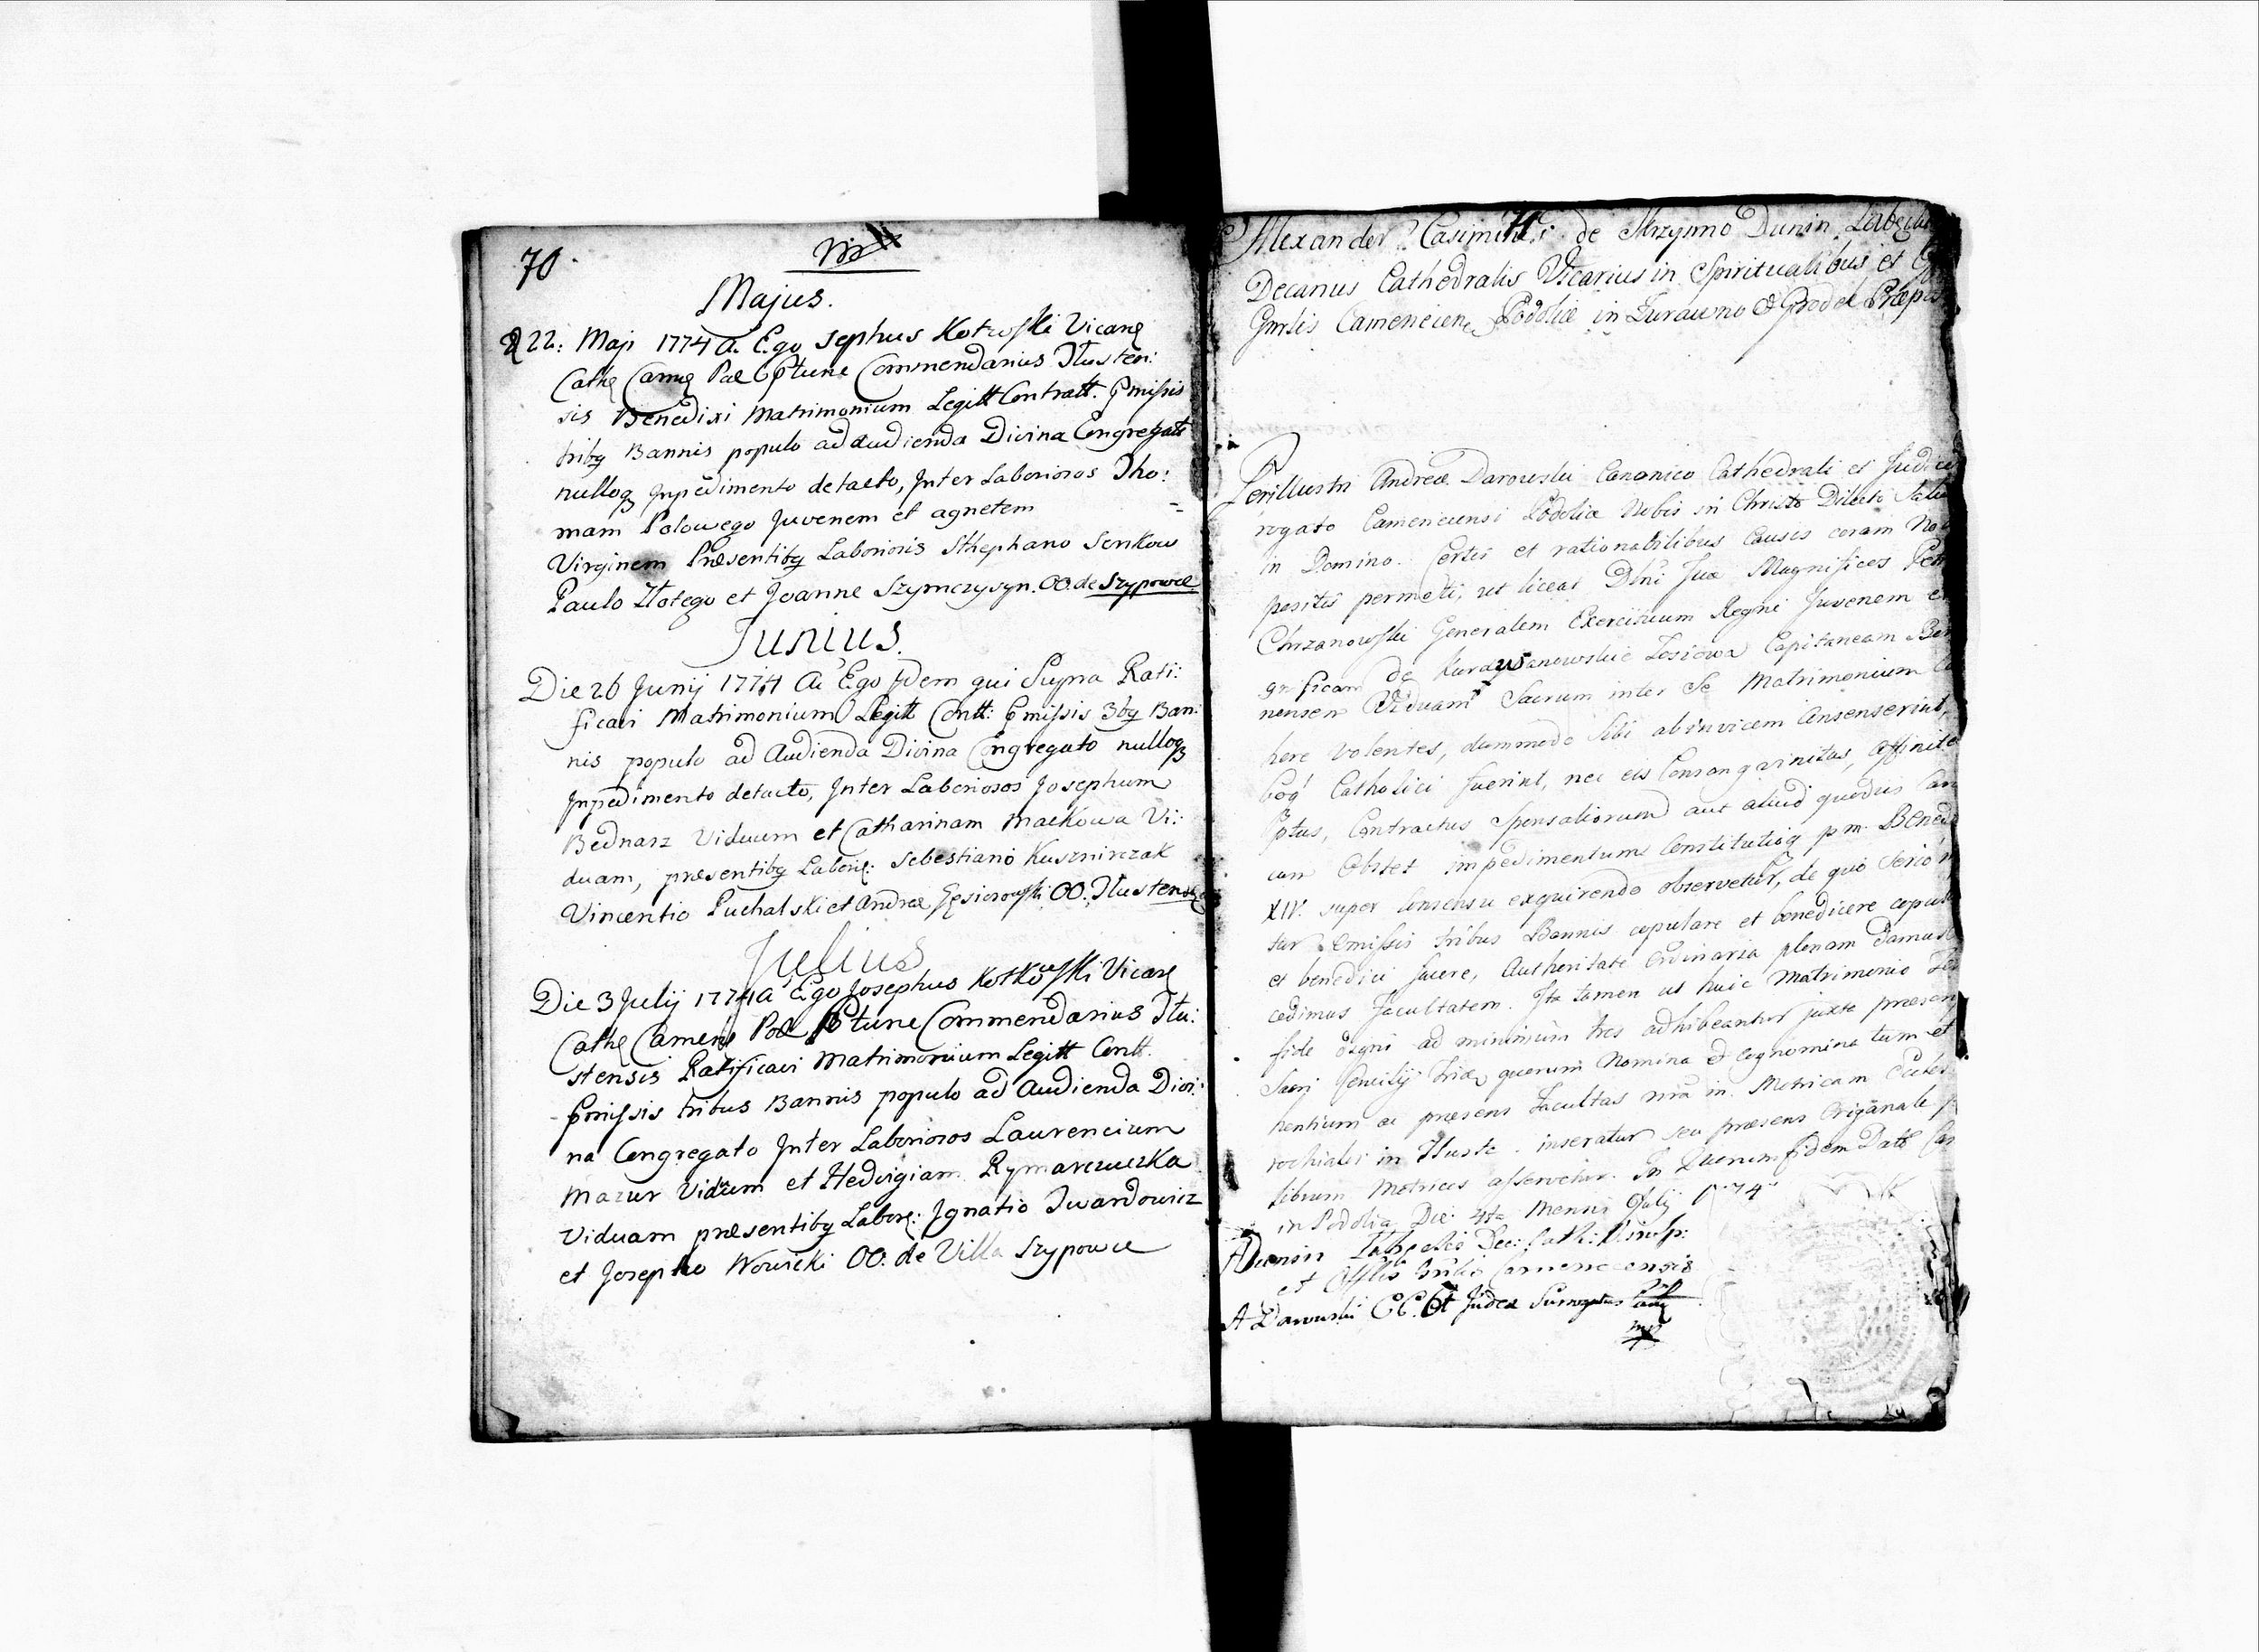 70.
Majus.
22: Maji 1774 A. Ego Josephus Kotkoswki Vicar
Cath Came Pod Commendarius Tłusten:
sis Benedixi Matrimonium Legitt Contratt. Pmissis
tribq Bannis populo ad audienda Divina Congregato
nulloq Inpedimento detacto, Inter Laboriosos Tho:
mam Polowego Juvenem et agnetem =
Virginem Præsentibq Laboriosis Sthephano Senkow
Paulo Złotego et Joanne Szymczyszyn. OO. de Szypowce
Junius.
Die 26 Junij 1774 A. Ego Idem qui Supra Rati:
ficavi Matrimonium Legitt Contt: Pmissis 3bq Ban:
nis populo ad Audienda Divina Congregato nulloq
Inpedimento detacto, Inter Laboriosos Josephum
Bednarz Viduum et Catharinam Maćkowa Vi:
duam, præsentibq Labori: Sebestiano Kusznirczak
Vincentio Puchalski et Andrea Gęsiorowski OO. Tłustens
Julius
Die 3 Julij 1774 A Ego Josephus Kotkowski Vicar
Cath Camen Pod Commendarius Tłu:
stensis Ratificavi Matrimonium Legitt Contt.
Pmissis tribus Bannis populo ad Audienda Divi:
na Congregato Inter Laboriosos Laurencium
Mazur Viduum et Hedvigiam Rymarczuczka
Viduam præsentibq Labor: Ignatio Twardowicz
et Josepho Nowicki OO. de Villa Szypowce
71
Alexander Casimirus de Skrzynno Dunin Łabęcki
Decanus Cathedralis Vicarius in Spiritualibus et
Gnrlis Camenecen Podoliæ in Żurawno & Grodek Præpos
Perillustri Andreæ Darowski Canonico Cathedrali et Judici
rogato Camenecensi Podoliæ Nobis in Christo Dilecto Salu
in Domino. Certis et rationabilibus Causis coram No
positis permoti, ut liceat Dtni Suæ Magnificos Pet
Chrzanowski Generalem Exercituum Regni Juvenem e
gnificam de Łosiowa Capitaneam
nensem Viduam Sacrum inter Se Matrimonium
here Volentes, dummodo Sibi ab invicem Consenserint,
Catholici fuerint, nec eis Consangvinitas, Affinita
ptus, Contractus Sponsaliorum aut aliud quodvis Can
cum Obstet impedimentum Constitutioq p m. Bened
XIV. super Consensu exquirendo observetur, de quo Serio
tur Omissis tribus Bannis copulare et benedicere copul
et benedici facere, Authoritate Ordinaria plenam Damus
cedimus Facultatem. Ita tamen ut huic Matrimonio Tes
fide digni ad minimum tres adhibeantur juxta præscri
Sacri Concilij Trid quorum Nomina & Cognomina tum et
hentium ac præsens Facultas nra in Metricam Eccles
rochialis in Tłuste inseratur seu præsens Originale p
Librum Metrices asservetur. In Quorum fidem Datt Cam
in Podolia Die 4ta Mensis Julij 1774
ADunin Łabęcki Dec: Cath:
et Offlis Gnrlis Camenecensis
A Darowski CC. et Judex Surrogatus Cam
mp